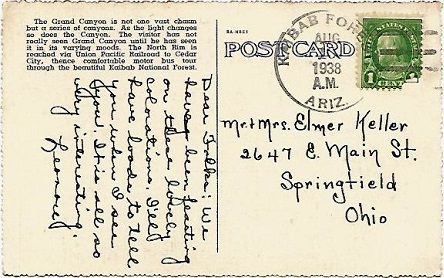 The Grand Canyon is not one vast chasm
but a series of canyons. As the light changes
so does the Canyon. The visitor has not
really seen Grand Canyon until he has seen
it in its varying moods. The North Rim is
reached via Union Pacific Railroad to Cedar
City, thence comfortable motor bus tour
through the beautiful Kaibab National Forest.
Dear Folks: We
have been feasting
on these lovely
colorations. I'll
have loads to tell
you when I see
you. It is all so
very interesting.
POST CARD
KAIBAB FOREST
AUG
1938
A.M.
ARIZ.
1 CENT 1
Mr. & Mrs. Elmer Keller
2647 E. Main St.
Springfield
Ohio